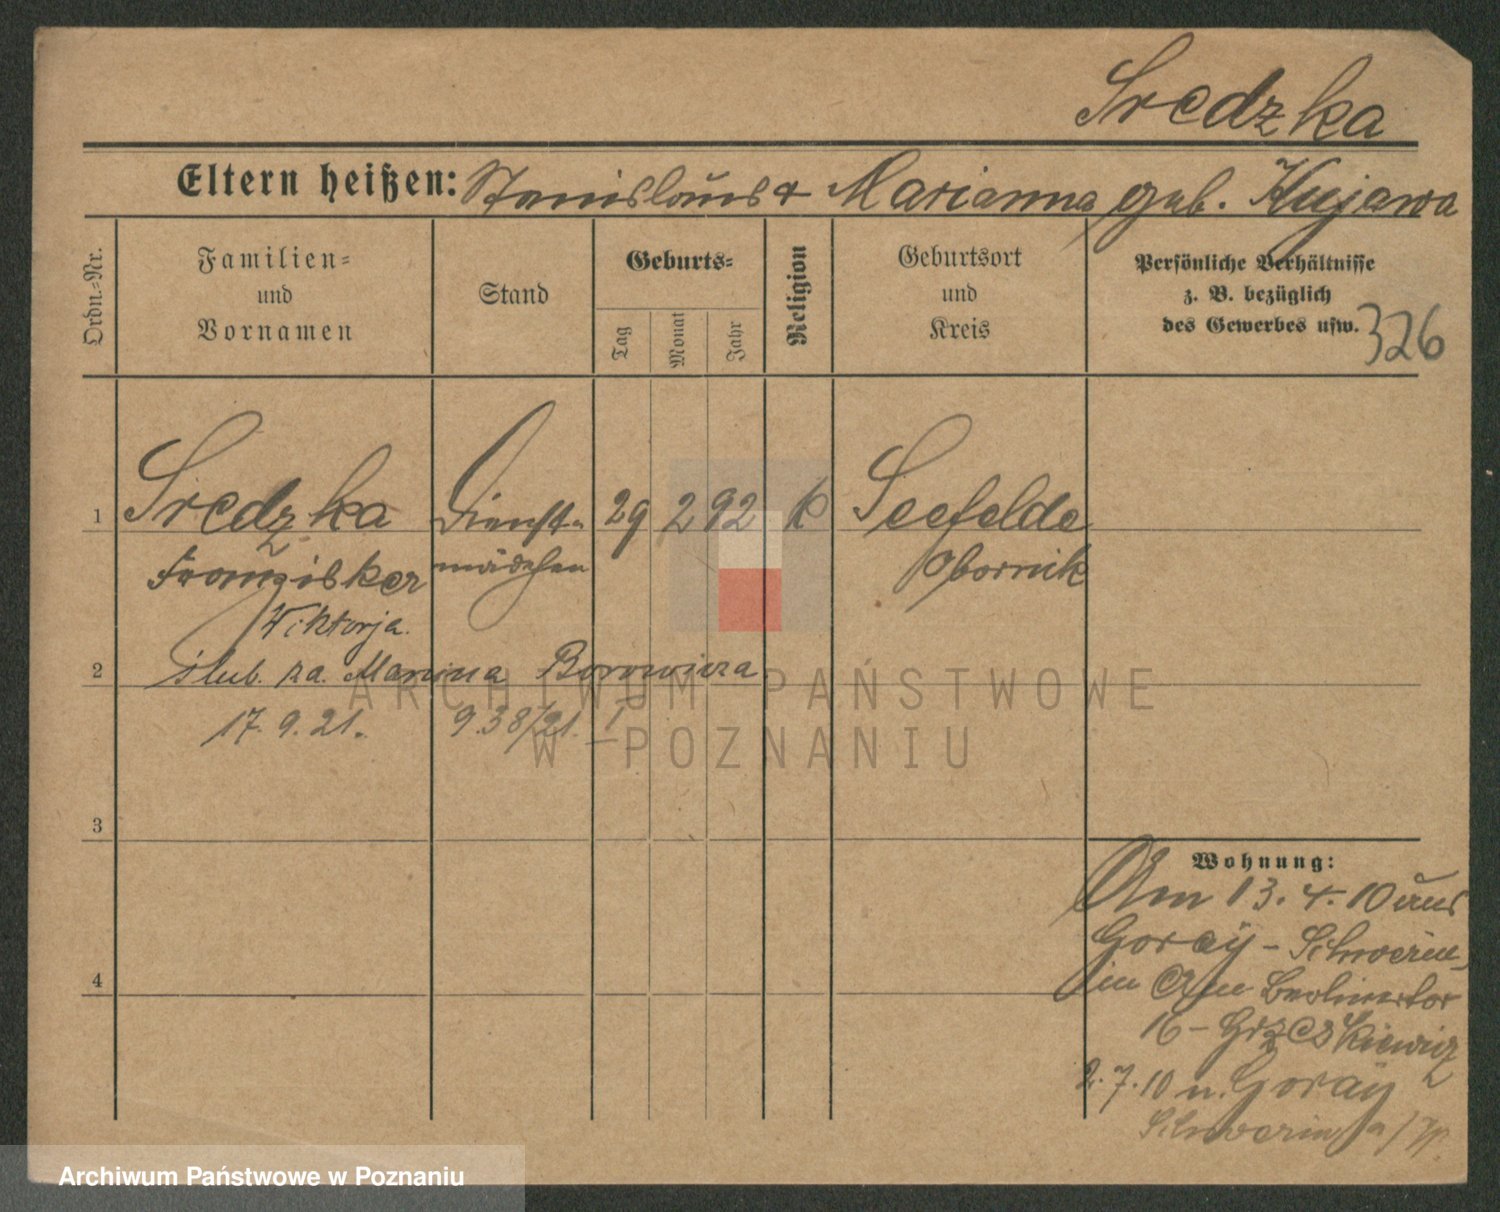 Sredzka
Eltern heißen: Stanislaus & Marianna geb. Kujawa
Ordn.-Nr.
Familien-
und
Vornamen
Stand
Geburts-
Tag
Monat
Jahr
Religion
Geburtsort
und
Kreis
Persönliche Verhältnisse
z. B. bezüglich
des Gewerbes usw.
326
1 Sredzka Dienst- 29 2 92 k Seefelde
Franziska mädchen Obornik
Wiktorja.
2 ślub. za. Borowicza
17. 9. 21. 938/21. I
3
Wohnung:
Am 13. 4. 10 aus
Goray - Schwerin
4
in Berlinertor
16 - Grzeskiewicz
2. 7. 10 n. Goray
Schwerin
ARCHIWUM PAŃSTWOWE
W POZNANIU
Archiwum Państwowe w Poznaniu